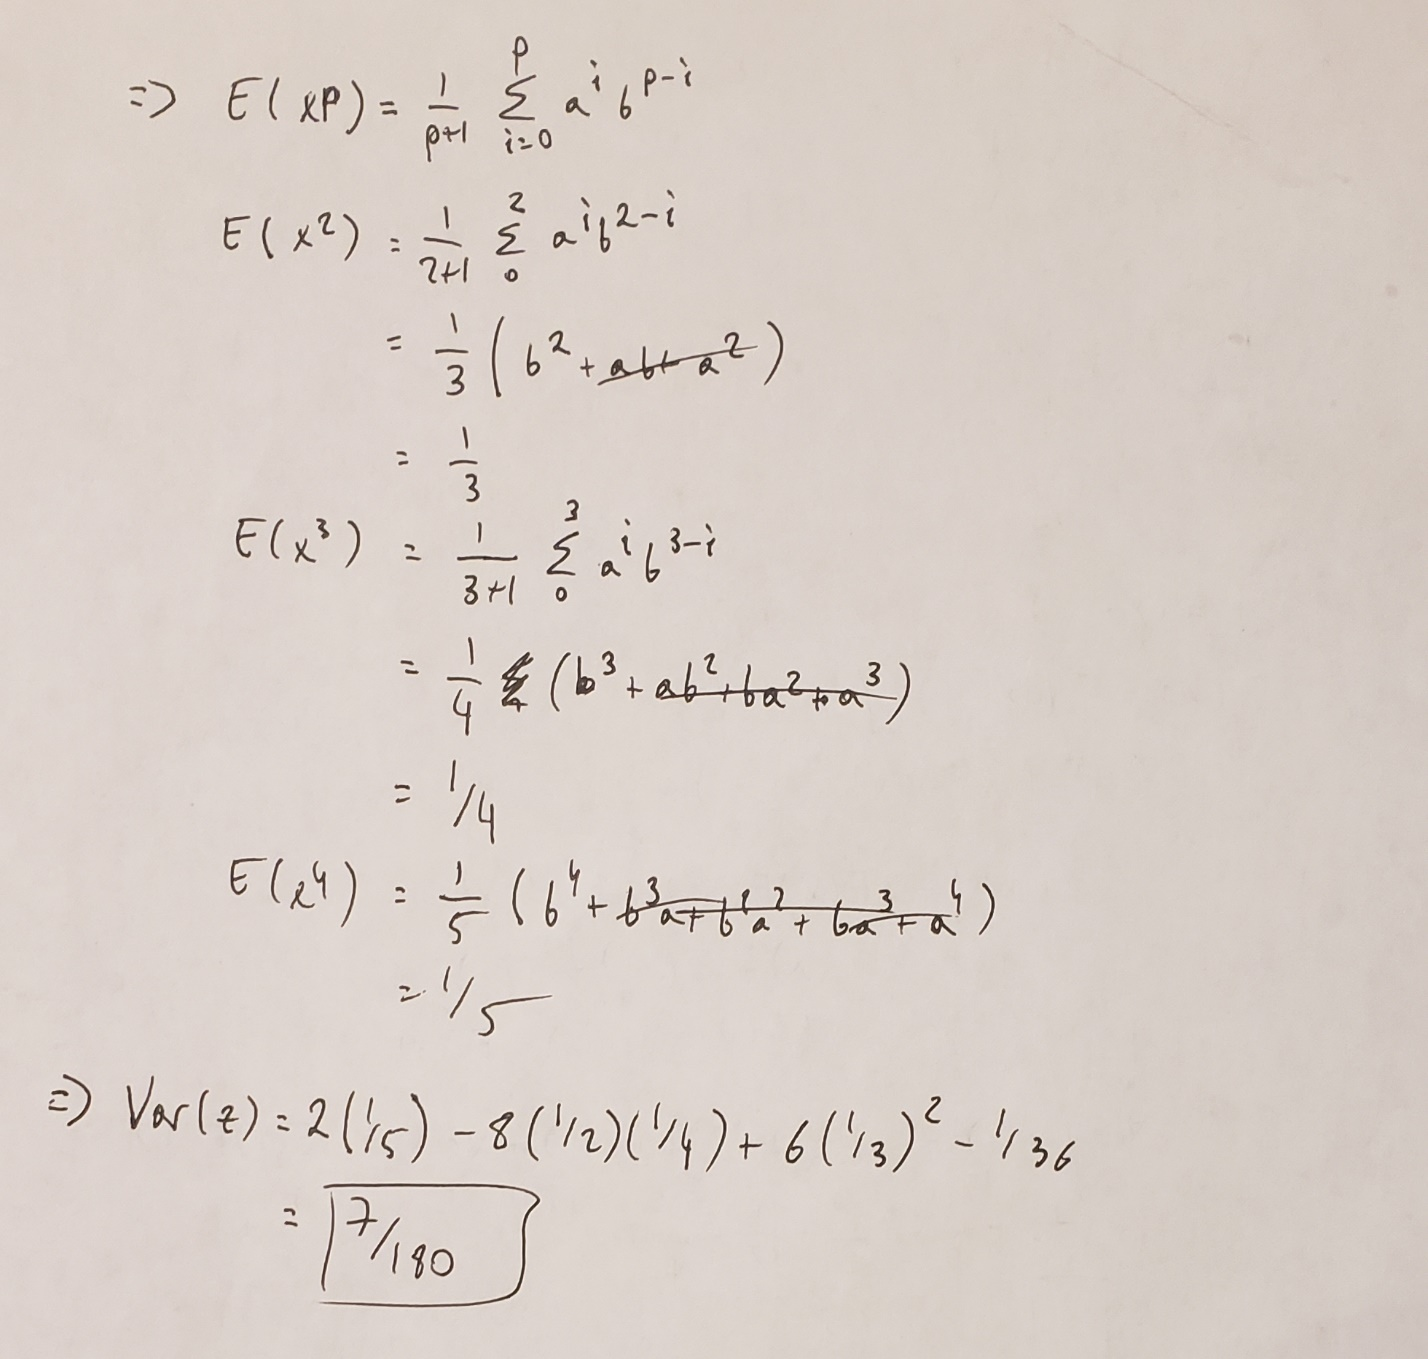 => E(xᵖ) = 1/(p+1) Σ_{i=0}^{p} aⁱ b^{p-i}
E(x²) = 1/(2+1) Σ_{0}^{2} aⁱb^{2-i}
= 1/3 (b² + ab + a²)
= 1/3
E(x³) = 1/(3+1) Σ_{0}^{3} aⁱ b^{3-i}
= 1/4 (b³ + ab² + ba² + a³)
= 1/4
E(x⁴) = 1/5 (b⁴ + b³a + b²a² + ba³ + a⁴)
= 1/5
=> Var(z) = 2(1/5) - 8(1/2)(1/4) + 6(1/3)² - 1/36
= 7/180